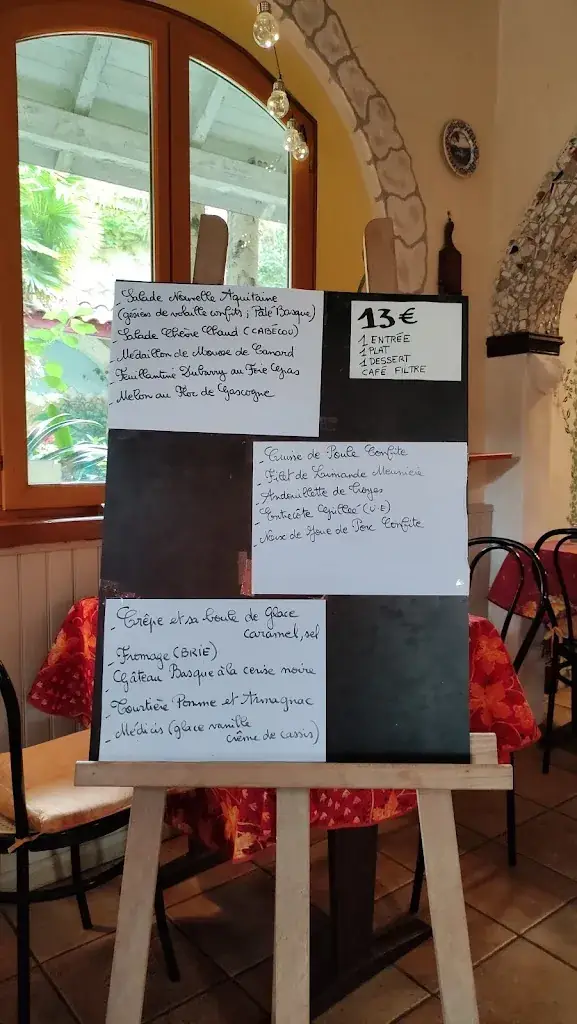 Salade Nouvelle Aquitaine
(gésiers de volaille confits ; Pâté Basque)
- Salade Chèvre Chaud (CABÉCOU)
- Médaillon de Mousse de Canard
- Feuillantine Dubarry au Foie Gras
- Melon au Floc de Gascogne
13€
1 ENTRÉE
1 PLAT
1 DESSERT
CAFÉ FILTRE
- Cuisse de Poule Confite
- Filet de Limande Meunière
- Andouillette de Troyes
- Entrecôte Grillée (U.E)
- Noix de Joue de Porc Confite
- Crêpe et sa boule de Glace
caramel, sel
- Fromage (BRIE)
- Gâteau Basque à la cerise noire
- Tourtière Pomme et Armagnac
- Médicis (glace vanille
crème de cassis)